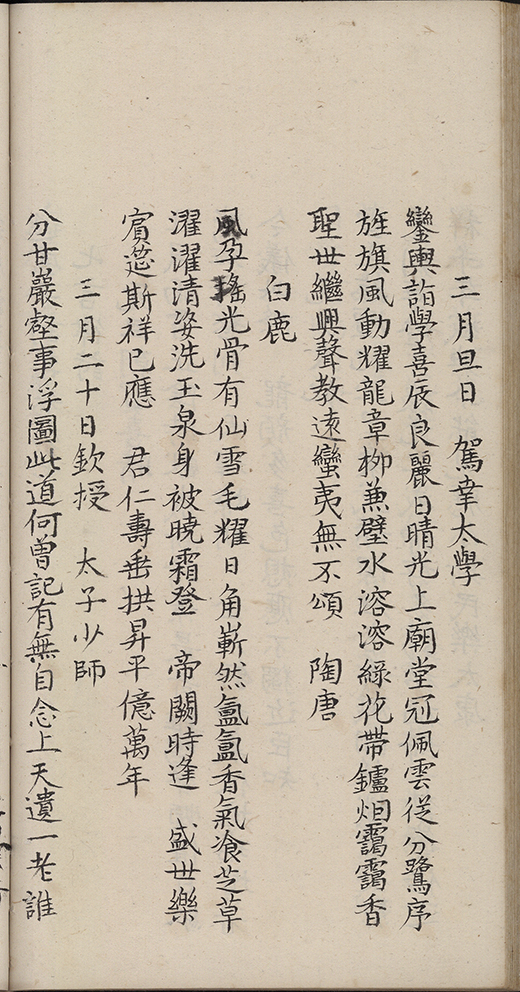 三月旦日　駕幸太學
鑾輿詣學喜辰良麗日晴光上廟堂冠佩雲從分鷺序
旌旗風動耀龍章柳蒹璧水溶溶綠花帶鑪烟靄靄香
聖世繼興聲教遠蠻夷無不頌　陶唐
白鹿
風孕瑤光骨有仙雪毛耀日角嶄然氤氳香氣飡芝草
濯濯清姿洗玉泉身被曉霜登　帝闕時逢　盛世樂
賓筵斯祥已應　君仁壽垂拱昇平億萬年
三月二十日欽授　太子少師
分甘巖壑事浮圖此道何曾記有無自念上天遺一老誰